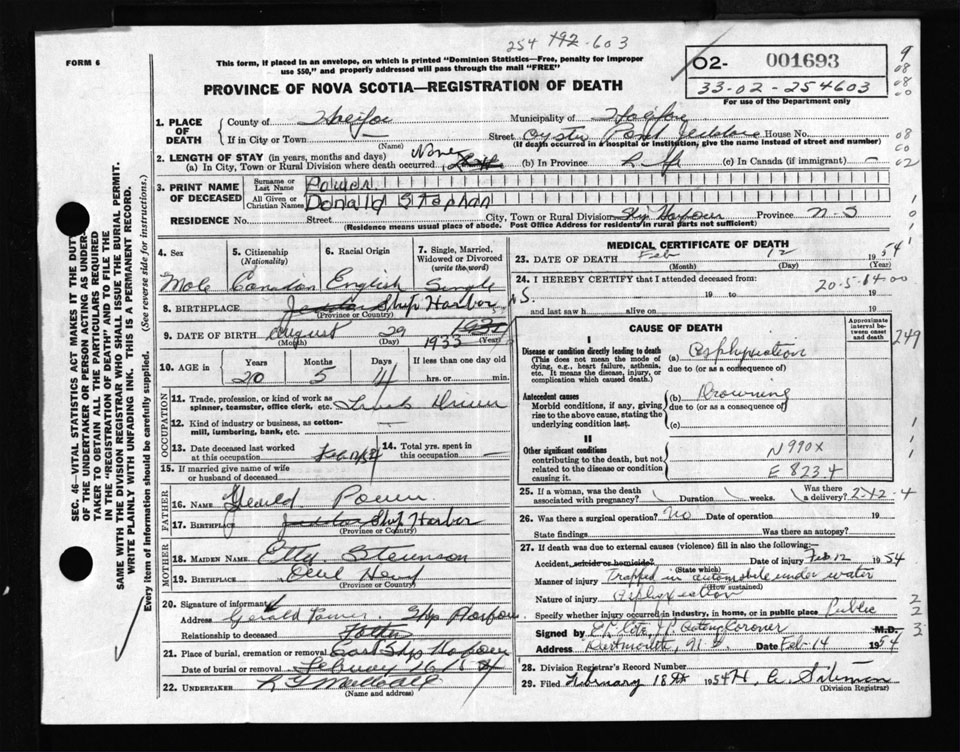 254 192-603
FORM 6
This form, if placed in an envelope, on which is printed "Dominion Statistics—Free, penalty for improper
use $50," and properly addressed will pass through the mail "FREE"
02- 001693
33-02-254603
For use of the Department only
PROVINCE OF NOVA SCOTIA—REGISTRATION OF DEATH
1. PLACE OF DEATH
County of Halifax
Municipality of Halifax
If in City or Town —
(Name)
Street Oyster Pond Jeddore House No.
(If death occurred in a hospital or institution, give the name instead of street and number)
2. LENGTH OF STAY (in years, months and days)
(a) In City, Town or Rural Division where death occurred None (b) In Province Life (c) In Canada (if immigrant) —
3. PRINT NAME OF DECEASED
Surname or Last Name Power
All Given or Christian Names Donald Stephan
RESIDENCE No. Street City, Town or Rural Division Ship Harbour Province N-S
(Residence means usual place of abode. Post Office Address for residents in rural parts not sufficient)
4. Sex
Male
5. Citizenship (Nationality)
Canadian
6. Racial Origin
English
7. Single, Married, Widowed or Divorced (write the word)
Single
8. BIRTHPLACE Ship Harbor N S.
(Province or Country)
9. DATE OF BIRTH August 29 1933
(Month) (Day) (Year)
10. AGE in Years Months Days If less than one day old
20 5 14 hrs. or min.
OCCUPATION
11. Trade, profession, or kind of work as
spinner, teamster, office clerk, etc. Truck Driver
12. Kind of industry or business, as cotton-
mill, lumbering, bank, etc. —
13. Date deceased last worked
at this occupation
14. Total yrs. spent in
this occupation —
15. If married give name of wife
or husband of deceased
FATHER
16. NAME Gerald Power
17. BIRTHPLACE Ship Harbor
(Province or Country)
MOTHER
18. MAIDEN NAME Etta Stevenson
19. BIRTHPLACE Owl Head
(Province or Country)
20. Signature of informant Gerald Power
Address Ship Harbour
Relationship to deceased Father
21. Place of burial, cremation or removal East Ship Harbour
Date of burial or removal February 16/54
22. UNDERTAKER
(Name and address)
MEDICAL CERTIFICATE OF DEATH
23. DATE OF DEATH Feb 12 1954
(Month) (Day) (Year)
24. I HEREBY CERTIFY that I attended deceased from:
20-5-14-00
19 to 19
and last saw h alive on 19
CAUSE OF DEATH
Approximate interval between onset and death
I
Disease or condition directly leading to death
(This does not mean the mode of
dying, e.g., heart failure, asthenia,
etc. It means the disease, injury, or
complication which caused death.)
(a) Asphyxiation
due to (or as a consequence of)
Antecedent causes
Morbid conditions, if any, giving
rise to the above cause, stating the
underlying condition last.
(b) Drowning
due to (or as a consequence of)
(c)
II
Other significant conditions
contributing to the death, but not
related to the disease or condition
causing it.
N990X
E 8234
25. If a woman, was the death
associated with pregnancy? Duration weeks. Was there
a delivery? 2-12-4
26. Was there a surgical operation? No Date of operation 19
State findings Was there an autopsy?
27. If death was due to external causes (violence) fill in also the following:—
Accident, suicide or homicide? Date of injury Feb 12 1954
(State which)
Manner of injury Trapped in automobile under water
(How sustained)
Nature of injury Asphyxiation
Specify whether injury occurred in industry, in home, or in public place Public
Signed by Acting Coroner M.D.
Address Dartmouth, N.S. Date Feb-14 1954
28. Division Registrar's Record Number
29. Filed February 18th 1954
(Division Registrar)
SEC. 46—VITAL STATISTICS ACT MAKES IT THE DUTY
OF THE UNDERTAKER OR PERSON ACTING AS UNDER-
TAKER TO OBTAIN ALL THE PARTICULARS REQUIRED
IN THE "REGISTRATION OF DEATH" AND TO FILE THE
SAME WITH THE DIVISION REGISTRAR WHO SHALL ISSUE THE BURIAL PERMIT.
WRITE PLAINLY WITH UNFADING INK. THIS IS A PERMANENT RECORD.
Every item of information should be carefully supplied. (See reverse side for instructions.)
749